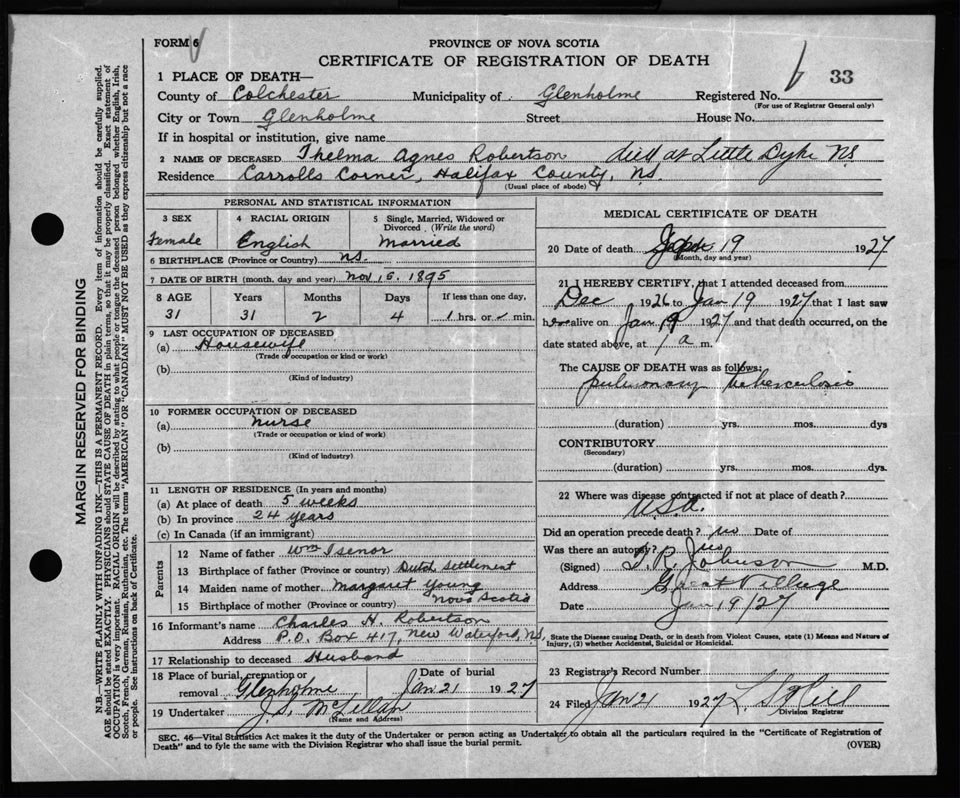 FORM 6
PROVINCE OF NOVA SCOTIA
CERTIFICATE OF REGISTRATION OF DEATH
33
1 PLACE OF DEATH—
County of Colchester Municipality of Glenholme Registered No.
(For use of Registrar General only)
City or Town Glenholme Street House No.
If in hospital or institution, give name
2 NAME OF DECEASED Thelma Agnes Robertson died at Little Dyke NS
Residence Carrolls Corner, Halifax County, N.S.
(Usual place of abode)
PERSONAL AND STATISTICAL INFORMATION
3 SEX 4 RACIAL ORIGIN 5 Single, Married, Widowed or
Divorced (Write the word)
Female English Married
6 BIRTHPLACE (Province or Country) N.S.
7 DATE OF BIRTH (month, day and year) Nov 15. 1895
8 AGE Years Months Days If less than one day,
31 31 2 4 hrs. or min.
9 LAST OCCUPATION OF DECEASED
(a) Housewife
(Trade or occupation or kind or work)
(b)
(Kind of industry)
10 FORMER OCCUPATION OF DECEASED
(a) nurse
(Trade or occupation or kind of work)
(b)
(Kind of industry)
11 LENGTH OF RESIDENCE (In years and months)
(a) At place of death 5 weeks
(b) In province 24 years
(c) In Canada (if an immigrant)
Parents
12 Name of father Wm Isenor
13 Birthplace of father (Province or country) Dutch Settlement
14 Maiden name of mother Margaret Young
15 Birthplace of mother (Province or country) Nova Scotia
16 Informant's name Charles H. Robertson
Address P.O. Box 417, New Waterford, N.S.
17 Relationship to deceased Husband
18 Place of burial, cremation or Date of burial
removal Glenholme Jan 21 1927
19 Undertaker J.S. McLellan
(Name and Address)
MEDICAL CERTIFICATE OF DEATH
20 Date of death Jan 19 1927
(Month, day and year)
21 I HEREBY CERTIFY, that I attended deceased from
Dec 1926 to Jan 19 1927 that I last saw
her alive on Jan 19 1927 and that death occurred, on the
date stated above, at 7 a m.
The CAUSE OF DEATH was as follows:
pulmonary tuberculosis
(duration) yrs. mos. dys
CONTRIBUTORY
(Secondary)
(duration) yrs. mos. dys.
22 Where was disease contracted if not at place of death?
U.S.A.
Did an operation precede death? no Date of
Was there an autopsy?
(Signed) T. R. Johnson M.D.
Address Great Village
Date Jan 19/27
State the Disease causing Death, or in death from Violent Causes, state (1) Means and Nature of
Injury, (2) whether Accidental, Suicidal or Homicidal.
23 Registrar's Record Number
24 Filed Jan 21 1927 Hill
Division Registrar
SEC. 46—Vital Statistics Act makes it the duty of the Undertaker or person acting as Undertaker to obtain all the particulars required in the "Certificate of Registration of
Death" and to fyle the same with the Division Registrar who shall issue the burial permit. (OVER)
MARGIN RESERVED FOR BINDING
N.B.—WRITE PLAINLY WITH UNFADING INK—THIS IS A PERMANENT RECORD. Every item of information should be carefully supplied.
AGE should be stated EXACTLY. PHYSICIANS should STATE CAUSE OF DEATH in plain terms, so that it may be properly classified. Exact statement of
OCCUPATION is very important. RACIAL ORIGIN will be described by stating to what people or tongue the deceased person belonged whether English, Irish,
Scotch, French, German, Russian, Ruthenian, etc. The terms "AMERICAN" OR "CANADIAN" MUST NOT BE USED as they express citizenship but not a race
or people. See instructions on back of Certificate.